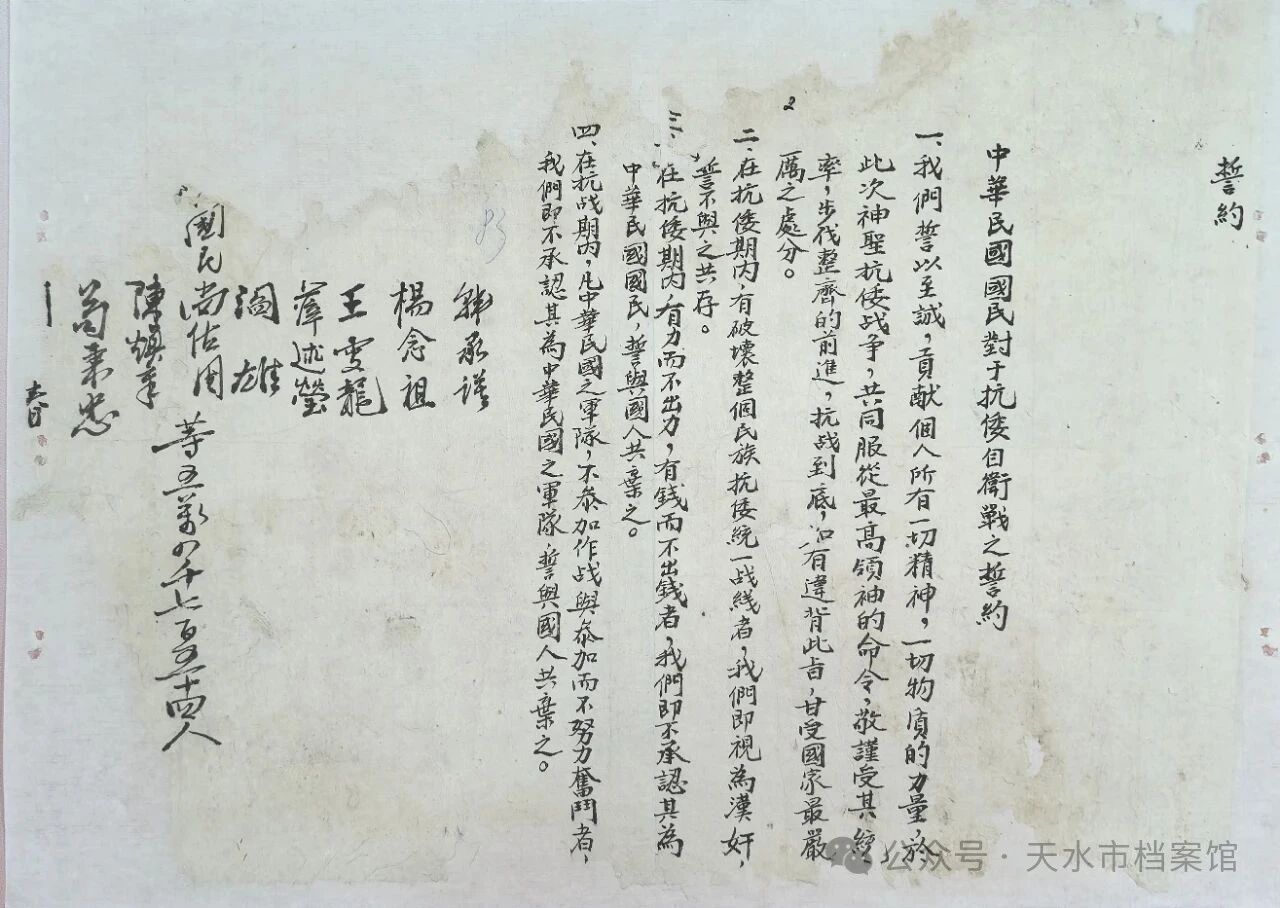 誓約
中華民國國民對于抗倭自衛戰之誓約
一、我們誓以至誠，貢献個人所有一切精神，一切物质的力量，於
此次神聖抗倭战争，共同服從最高领袖的命令，敬謹受其統
率，步伐整齊的前進，抗战到底，如有違背此旨，甘受國家最嚴
厲之處分。
2
二、在抗倭期内，有破壞整個民族抗倭統一战綫者，我們即視為漢奸，
誓不與之共存。
三、在抗倭期内有力而不出力，有錢而不出錢者，我們即不承認其為
中華民國國民，誓與國人共棄之。
四、在抗战期内，凡中華民國之軍隊，不叅加作战與叅加而不努力奮鬥者，
我們即不承認其為中華民國之軍隊，誓與國人共棄之。
83
承
楊念祖
王雯龍
薛述瑩
閻雄
國民尚佑周等五萬四千七百五十四人
陳煥章
葛秉忠
公众号·天水市档案馆